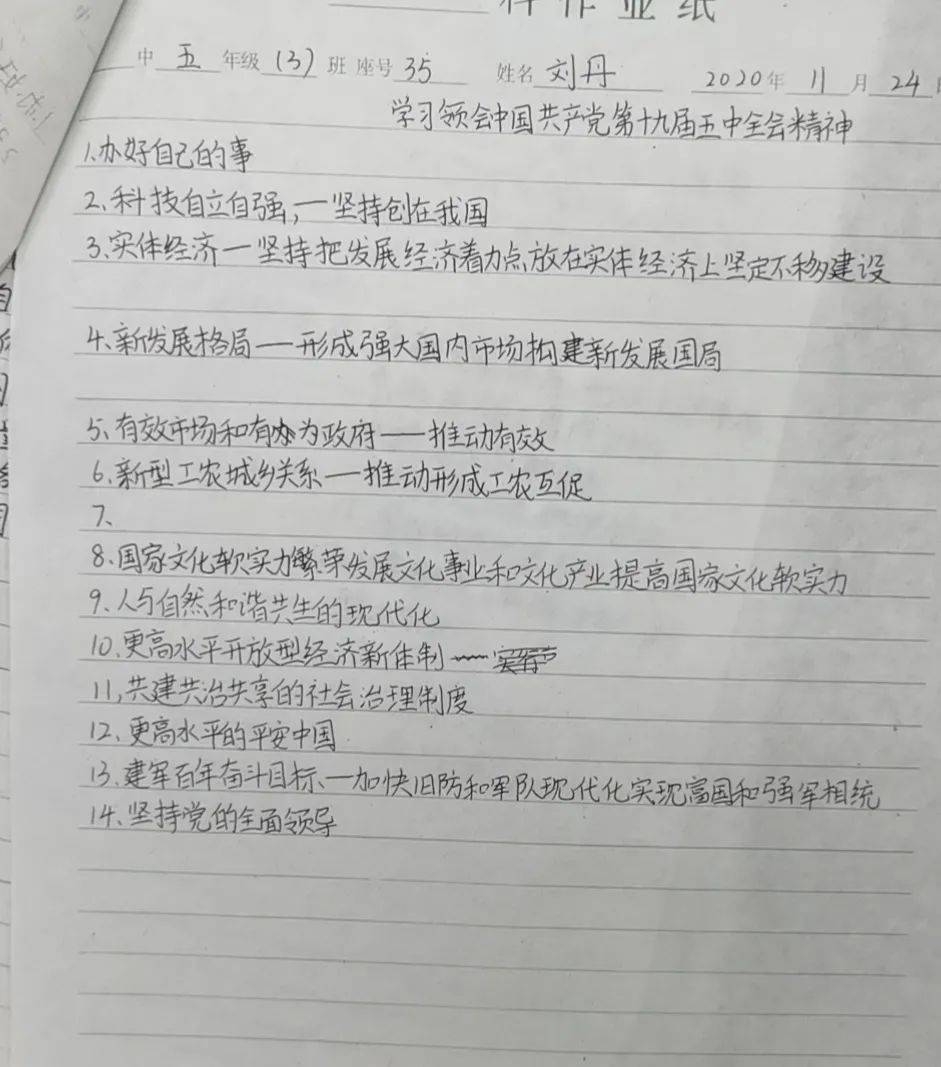 科作业纸
中 五 年级 (3) 班 座号 35 姓名 刘丹 2020年 11 月 24
学习领会中国共产党第十九届五中全会精神
1.办好自己的事
2、科技自立自强,一坚持创在我国
3、实体经济一坚持把发展经济着力点放在实体经济上坚定不移建设
4、新发展格局——形成强大国内市场构建新发展国局
5、有效市场和有办为政府——推动有效
6、新型工农城乡关系—推动形成工农互促
7、
8、国家文化软实力繁荣发展文化事业和文化产业提高国家文化软实力
9、人与自然和谐共生的现代化
10、更高水平开放型经济新体制
11,共建共治共享的社会治理制度
12、更高水平的平安中国
13、建军百年奋斗目标、一加快旧防和军队现代化实现富国和强军相统
14、坚持党的全面领导